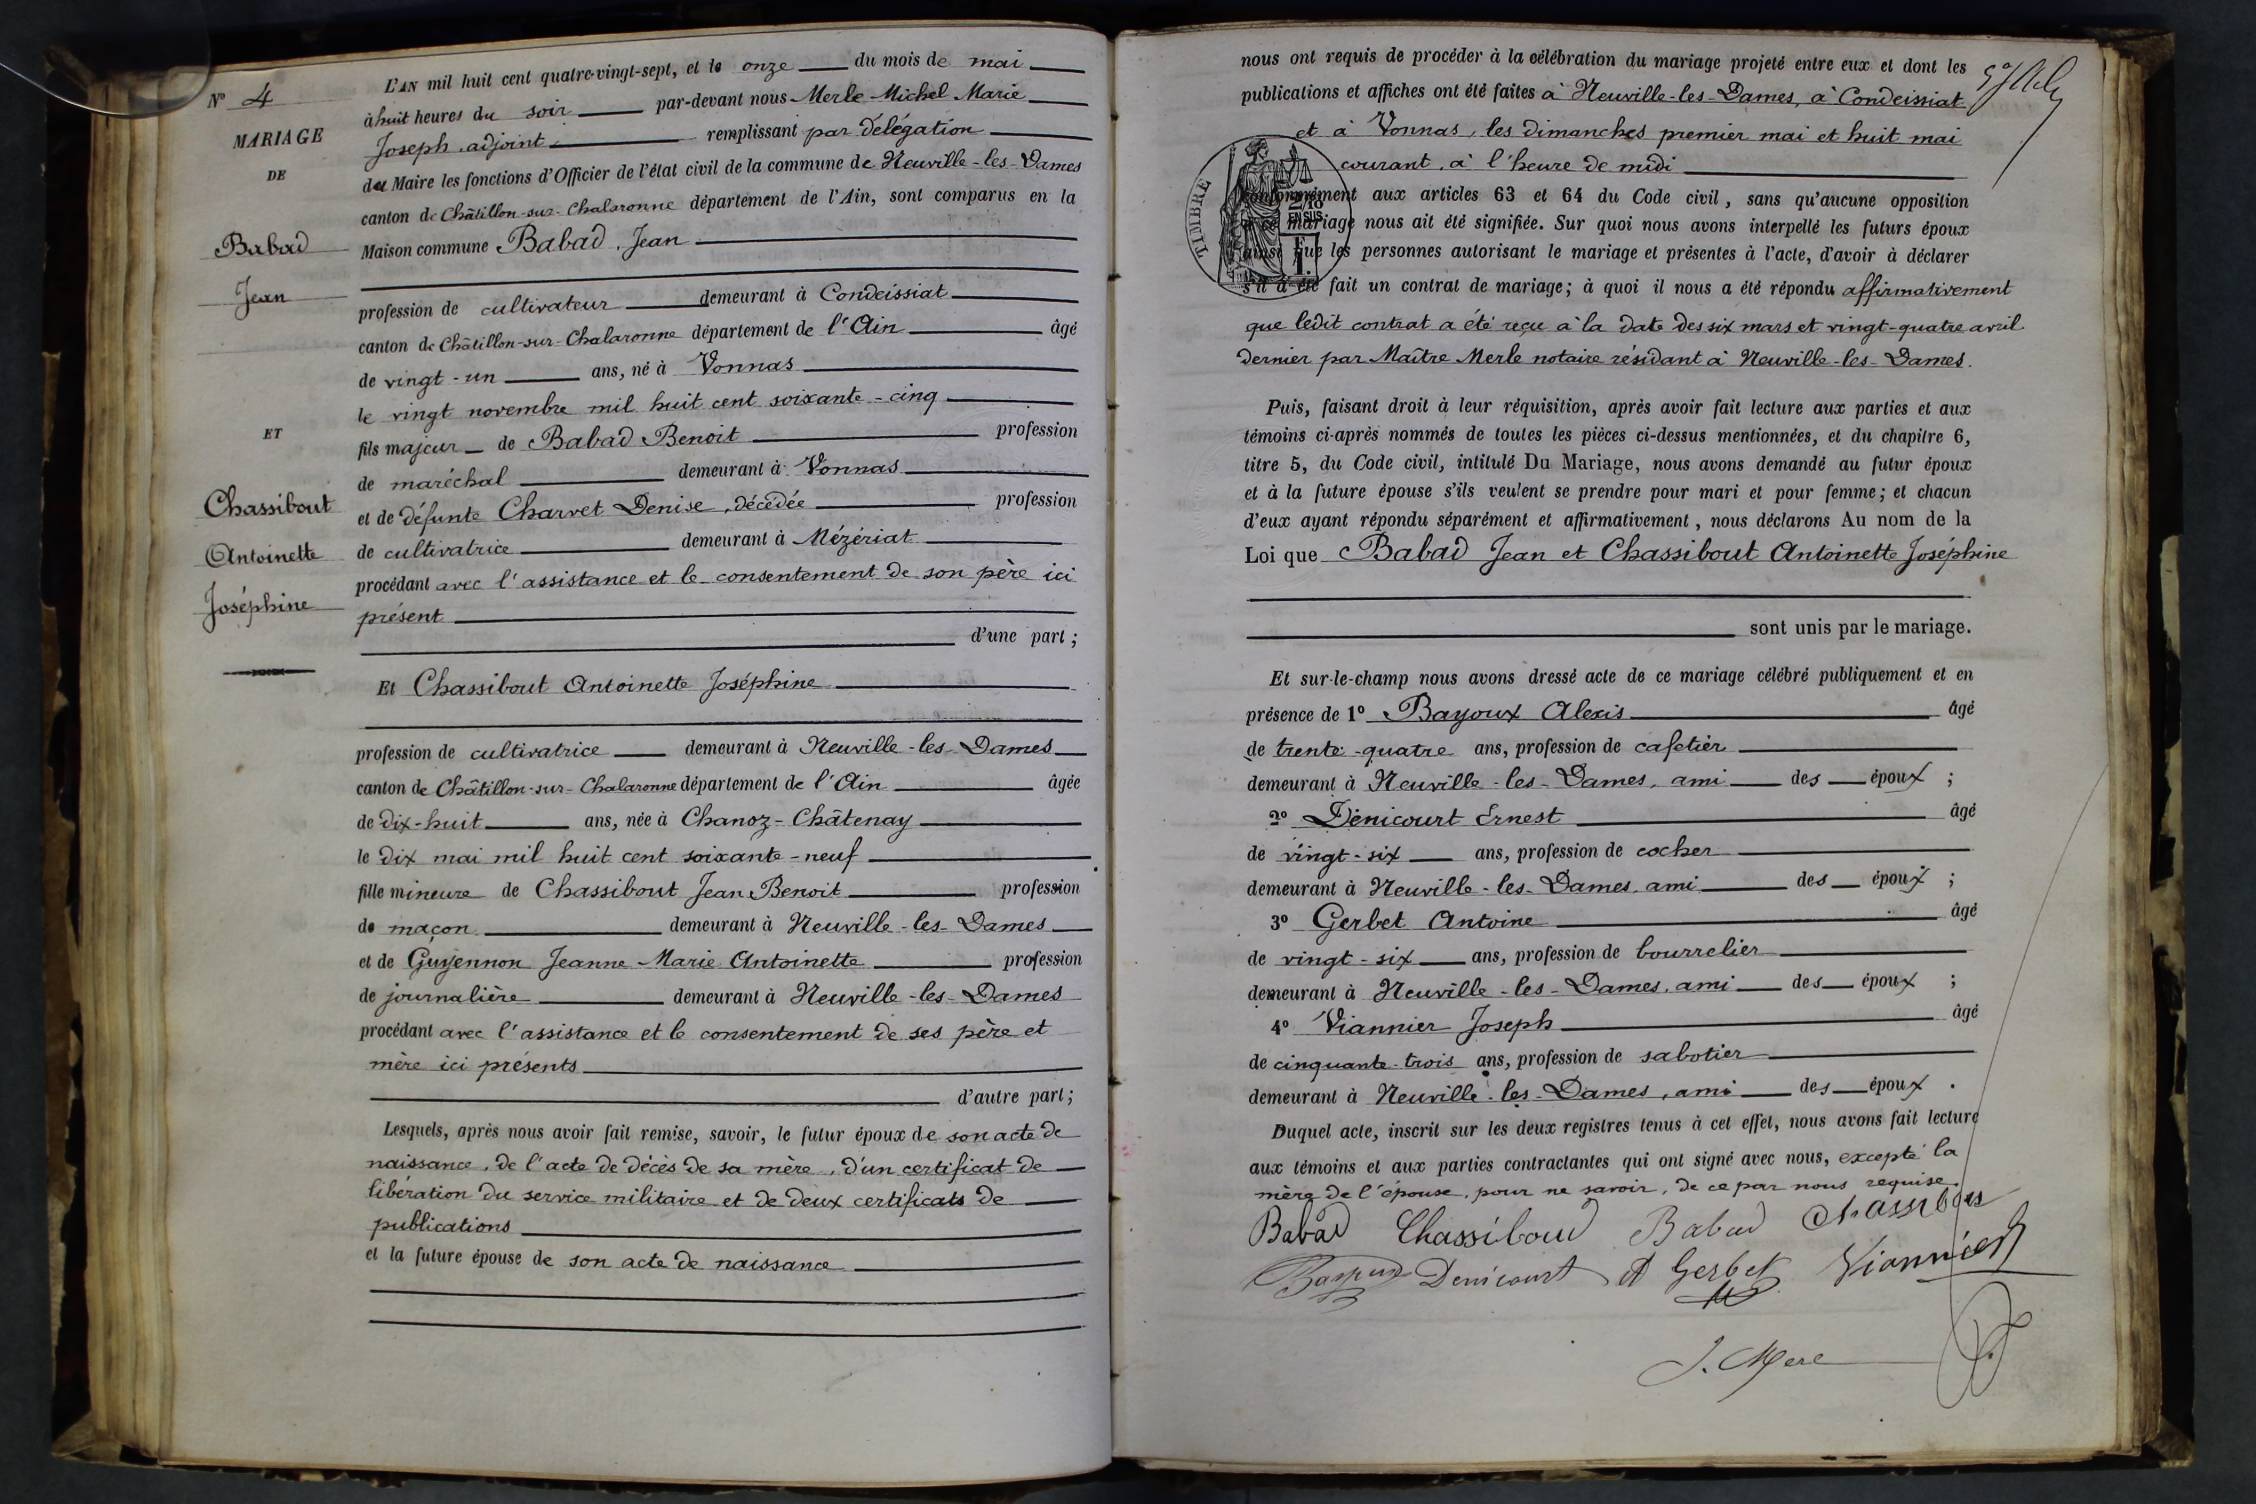 N° 4
MARIAGE
DE
Babad
Jean
ET
Chassibout
Antoinette
Joséphine
L'AN mil huit cent quatre-vingt-sept, et le onze du mois de mai
à huit heures du soir par-devant nous Merle Michel Marie
Joseph, adjoint, remplissant par délégation
du Maire les fonctions d'Officier de l'état civil de la commune de Neuville-les-Dames
canton de Châtillon-sur-Chalaronne département de l'Ain, sont comparus en la
Maison commune Babad Jean
profession de cultivateur demeurant à Condeissiat
canton de Châtillon-sur-Chalaronne département de l'Ain âgé
de vingt-un ans, né à Vonnas
le vingt novembre mil huit cent soixante-cinq
fils majeur de Babad Benoit profession
de maréchal demeurant à Vonnas
et de défunte Charvet Denise, décédée profession
de cultivatrice demeurant à Mézériat
procédant avec l'assistance et le consentement de son père ici
présent
d'une part ;
Et Chassibout Antoinette Joséphine
profession de cultivatrice demeurant à Neuville-les-Dames
canton de Châtillon-sur-Chalaronne département de l'Ain âgée
de dix-huit ans, née à Chanoz-Châtenay
le dix mai mil huit cent soixante-neuf
fille mineure de Chassibout Jean Benoit profession
de maçon demeurant à Neuville-les-Dames
et de Guyennon Jeanne-Marie Antoinette profession
de journalière demeurant à Neuville-les-Dames
procédant avec l'assistance et le consentement de ses père et
mère ici présents
d'autre part ;
Lesquels, après nous avoir fait remise, savoir, le futur époux de son acte de
naissance, de l'acte de décès de sa mère, d'un certificat de
libération du service militaire et de deux certificats de
publications
et la future épouse de son acte de naissance
nous ont requis de procéder à la célébration du mariage projeté entre eux et dont les
publications et affiches ont été faites à Neuville-les-Dames, à Condeissiat
et à Vonnas, les dimanches premier mai et huit mai
courant, à l'heure de midi
conformément aux articles 63 et 64 du Code civil, sans qu'aucune opposition
à ce mariage nous ait été signifiée. Sur quoi nous avons interpellé les futurs époux
ainsi que les personnes autorisant le mariage et présentes à l'acte, d'avoir à déclarer
s'il a été fait un contrat de mariage; à quoi il nous a été répondu affirmativement
que ledit contrat a été reçu à la date des six mars et vingt-quatre avril
dernier par Maître Merle notaire résidant à Neuville-les-Dames.
TIMBRE
2/10
EN SUS
Puis, faisant droit à leur réquisition, après avoir fait lecture aux parties et aux
témoins ci-après nommés de toutes les pièces ci-dessus mentionnées, et du chapitre 6,
titre 5, du Code civil, intitulé Du Mariage, nous avons demandé au futur époux
et à la future épouse s'ils veulent se prendre pour mari et pour femme; et chacun
d'eux ayant répondu séparément et affirmativement, nous déclarons Au nom de la
Loi que Babad Jean et Chassibout Antoinette Joséphine
sont unis par le mariage.
Et sur-le-champ nous avons dressé acte de ce mariage célébré publiquement et en
présence de 1° Bayoux Alexis âgé
de trente-quatre ans, profession de cafetier
demeurant à Neuville-les-Dames, ami des époux ;
2° Dénicourt Ernest âgé
de vingt-six ans, profession de cocher
demeurant à Neuville-les-Dames, ami des époux ;
3° Gerbet Antoine âgé
de vingt-six ans, profession de bourrelier
demeurant à Neuville-les-Dames, ami des époux ;
4° Viannier Joseph âgé
de cinquante-trois ans, profession de sabotier
demeurant à Neuville-les-Dames, ami des époux .
Duquel acte, inscrit sur les deux registres tenus à cet effet, nous avons fait lecture
aux témoins et aux parties contractantes qui ont signé avec nous, excepté la
mère de l'épouse, pour ne savoir, de ce par nous requise.
Babad Chassiboud Babad
Denicourt A Gerbet Viannier